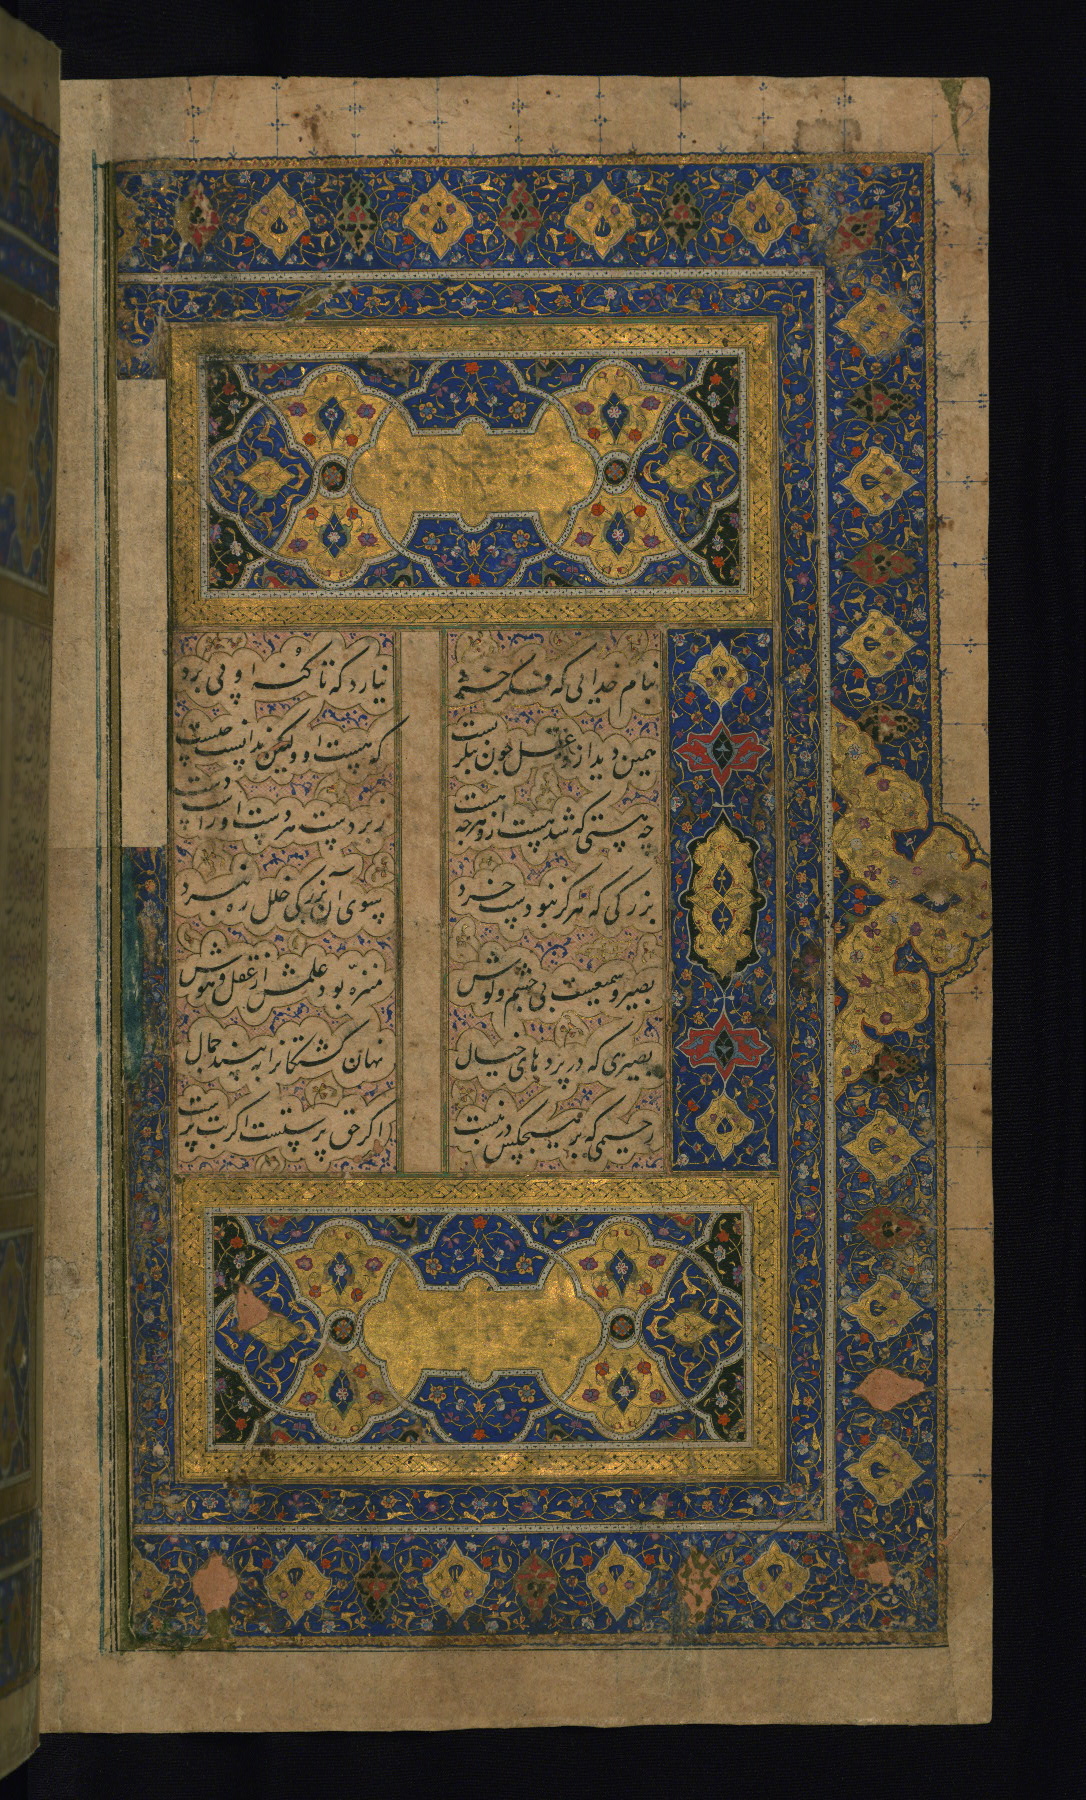 بنام خدایی که فکر خرد نیارد که تا کنه او پی برد
چنین دید از عقل چون بنگریست که هست او ولیکن ندانست چیست
چه هستی که شد هست ازو هرچه هست زبردست هر دست او راست دست
بزرگی که هرگز نبودست خرد بسوی آن بزرگی خلل ره نبرد
بصیر و سمیعست بی چشم و گوش منزه بود علمش از عقل و هوش
بصیری که در پردهای خیال نهان گشتگانرا به بیند جمال
رحیمی که بر هیچکس در نبست اگر حق پرستست اگر بت پرست